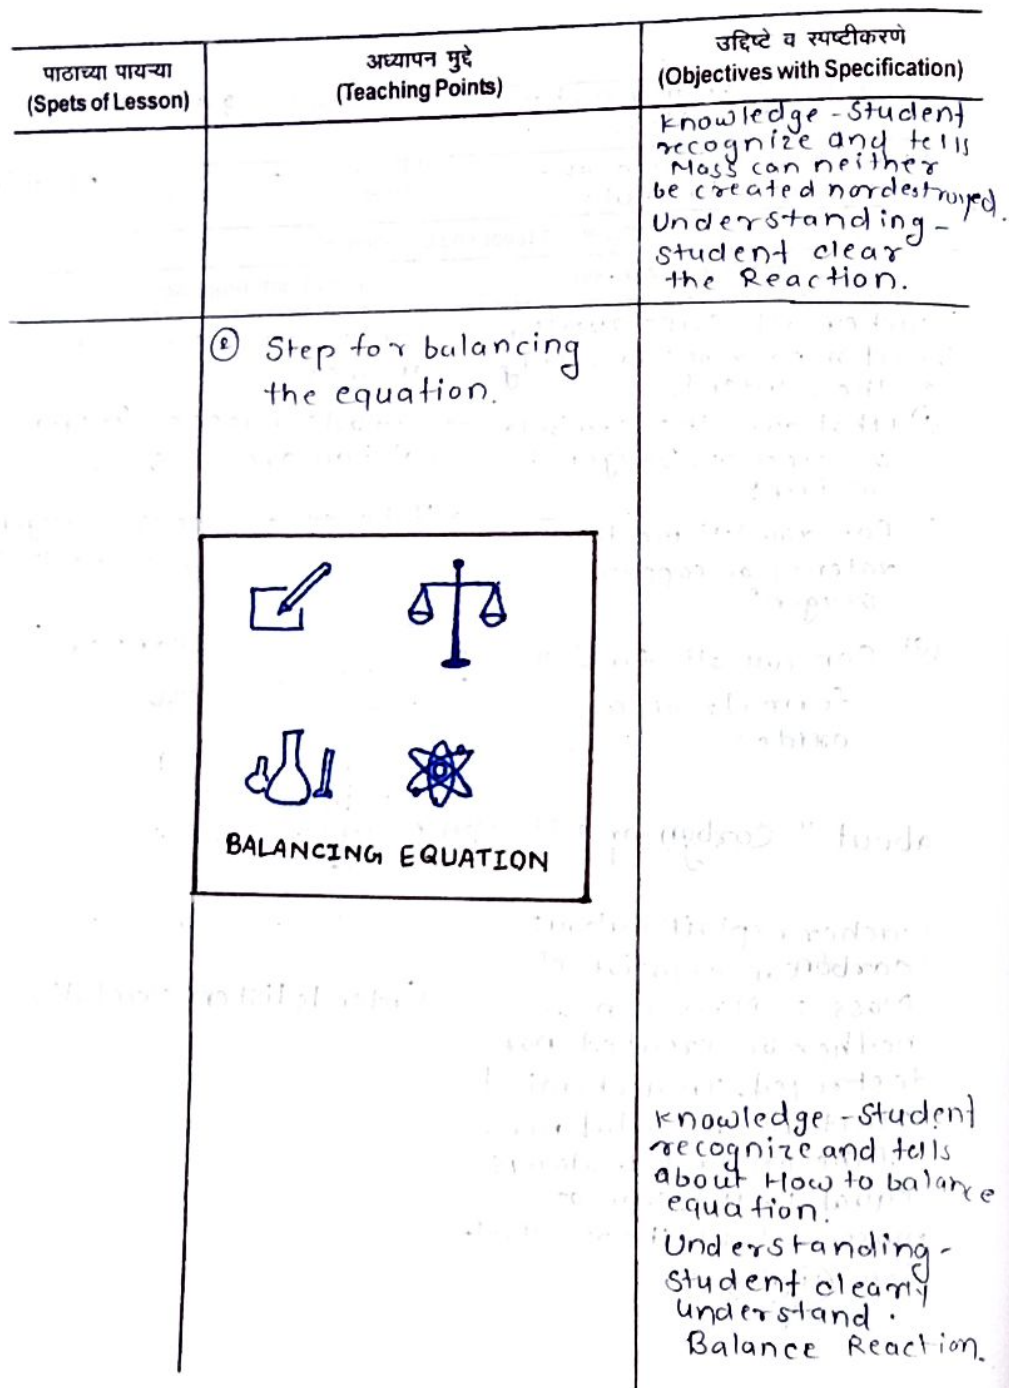 पाठाच्या पायऱ्या
(Spets of Lesson)
अध्यापन मुद्दे
(Teaching Points)
उद्दिष्टे व स्पष्टीकरणे
(Objectives with Specification)
Knowledge - Student
recognize and tells
Mass can neither
be created nor destroyed.
Understanding -
Student clear
the Reaction.
② Step for balancing
the equation.
BALANCING EQUATION
Knowledge - Student
recognize and tells
about How to balance
equation.
Understanding -
Student clearly
understand.
Balance Reaction.